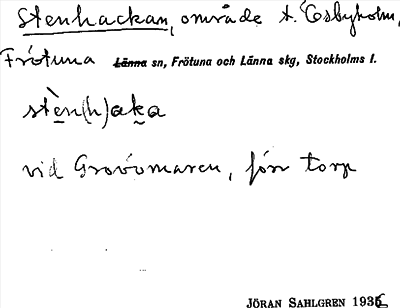 Stenhackan, område t. Esbyholm,
Frötuna Länna sn, Frötuna och Länna skg, Stockholms l.
stèn(h)aka
vid Grovömaren, förr torp
JÖRAN SAHLGREN 1936